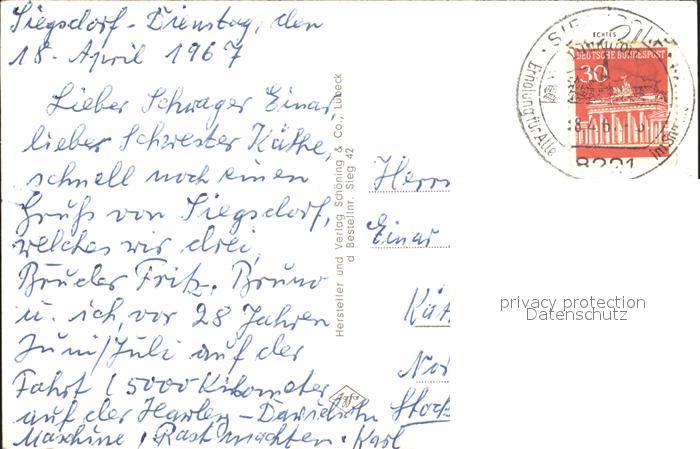 Siegsdorf - Dienstag, den
18. April 1967
Lieber Schwager Einar,
lieber Schwester Käthe,
schnell noch einen
Gruß von Siegsdorf,
welches wir drei,
Brüder Fritz, Bruno
u. ich, vor 28 Jahren
Juni/Juli auf der
Fahrt (5000 Kilometer
auf der Harley-Davidson
Maschine, Rast machten. Karl
Hersteller und Verlag Schöning & Co., Lübeck
d Bestellnr. Sieg 42
Herrn
Einar
Kät
Nor
Stock
ECHTES
DEUTSCHE BUNDESPOST
30
Erholung für Alle
8221
privacy protection
Datenschutz